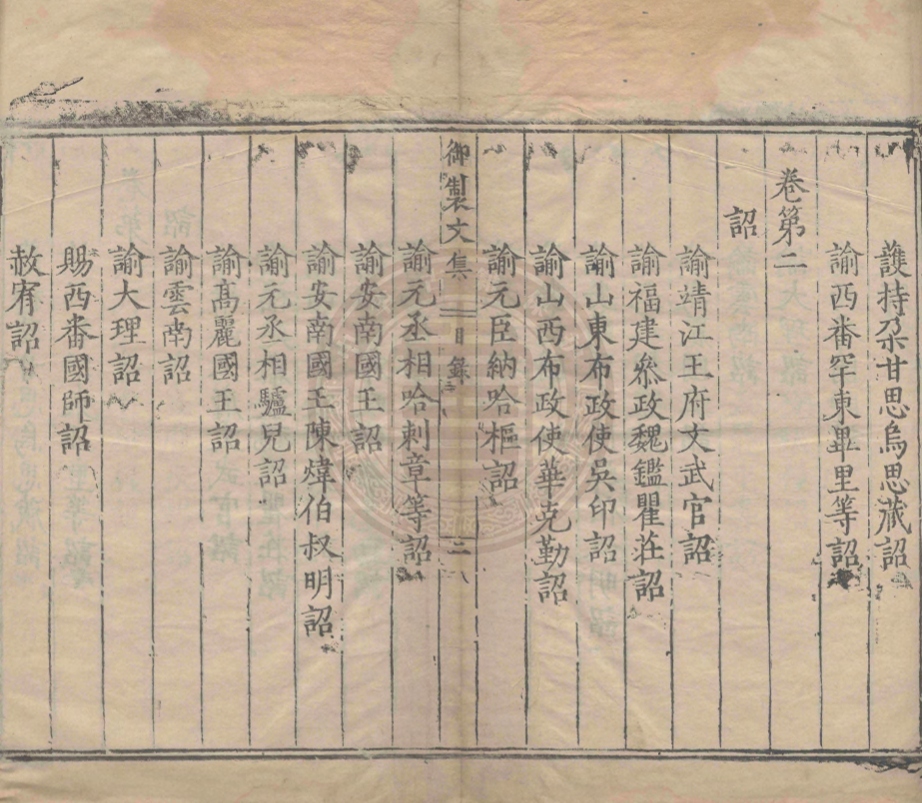 護持朶甘思烏思藏詔
諭西番罕東畢里等詔
卷第二
詔
諭靖江王府文武官詔
諭福建叅政魏鑑瞿莊詔
諭山東布政使吳印詔
諭山西布政使華克勤詔
諭元臣納哈樞詔
御製文集 目録 二
諭元丞相哈刺章等詔
諭安南國王詔
諭安南國王陳煒伯叔明詔
諭元丞相驢兒詔
諭高麗國王詔
諭雲南詔
諭大理詔
賜西番國師詔
赦宥詔